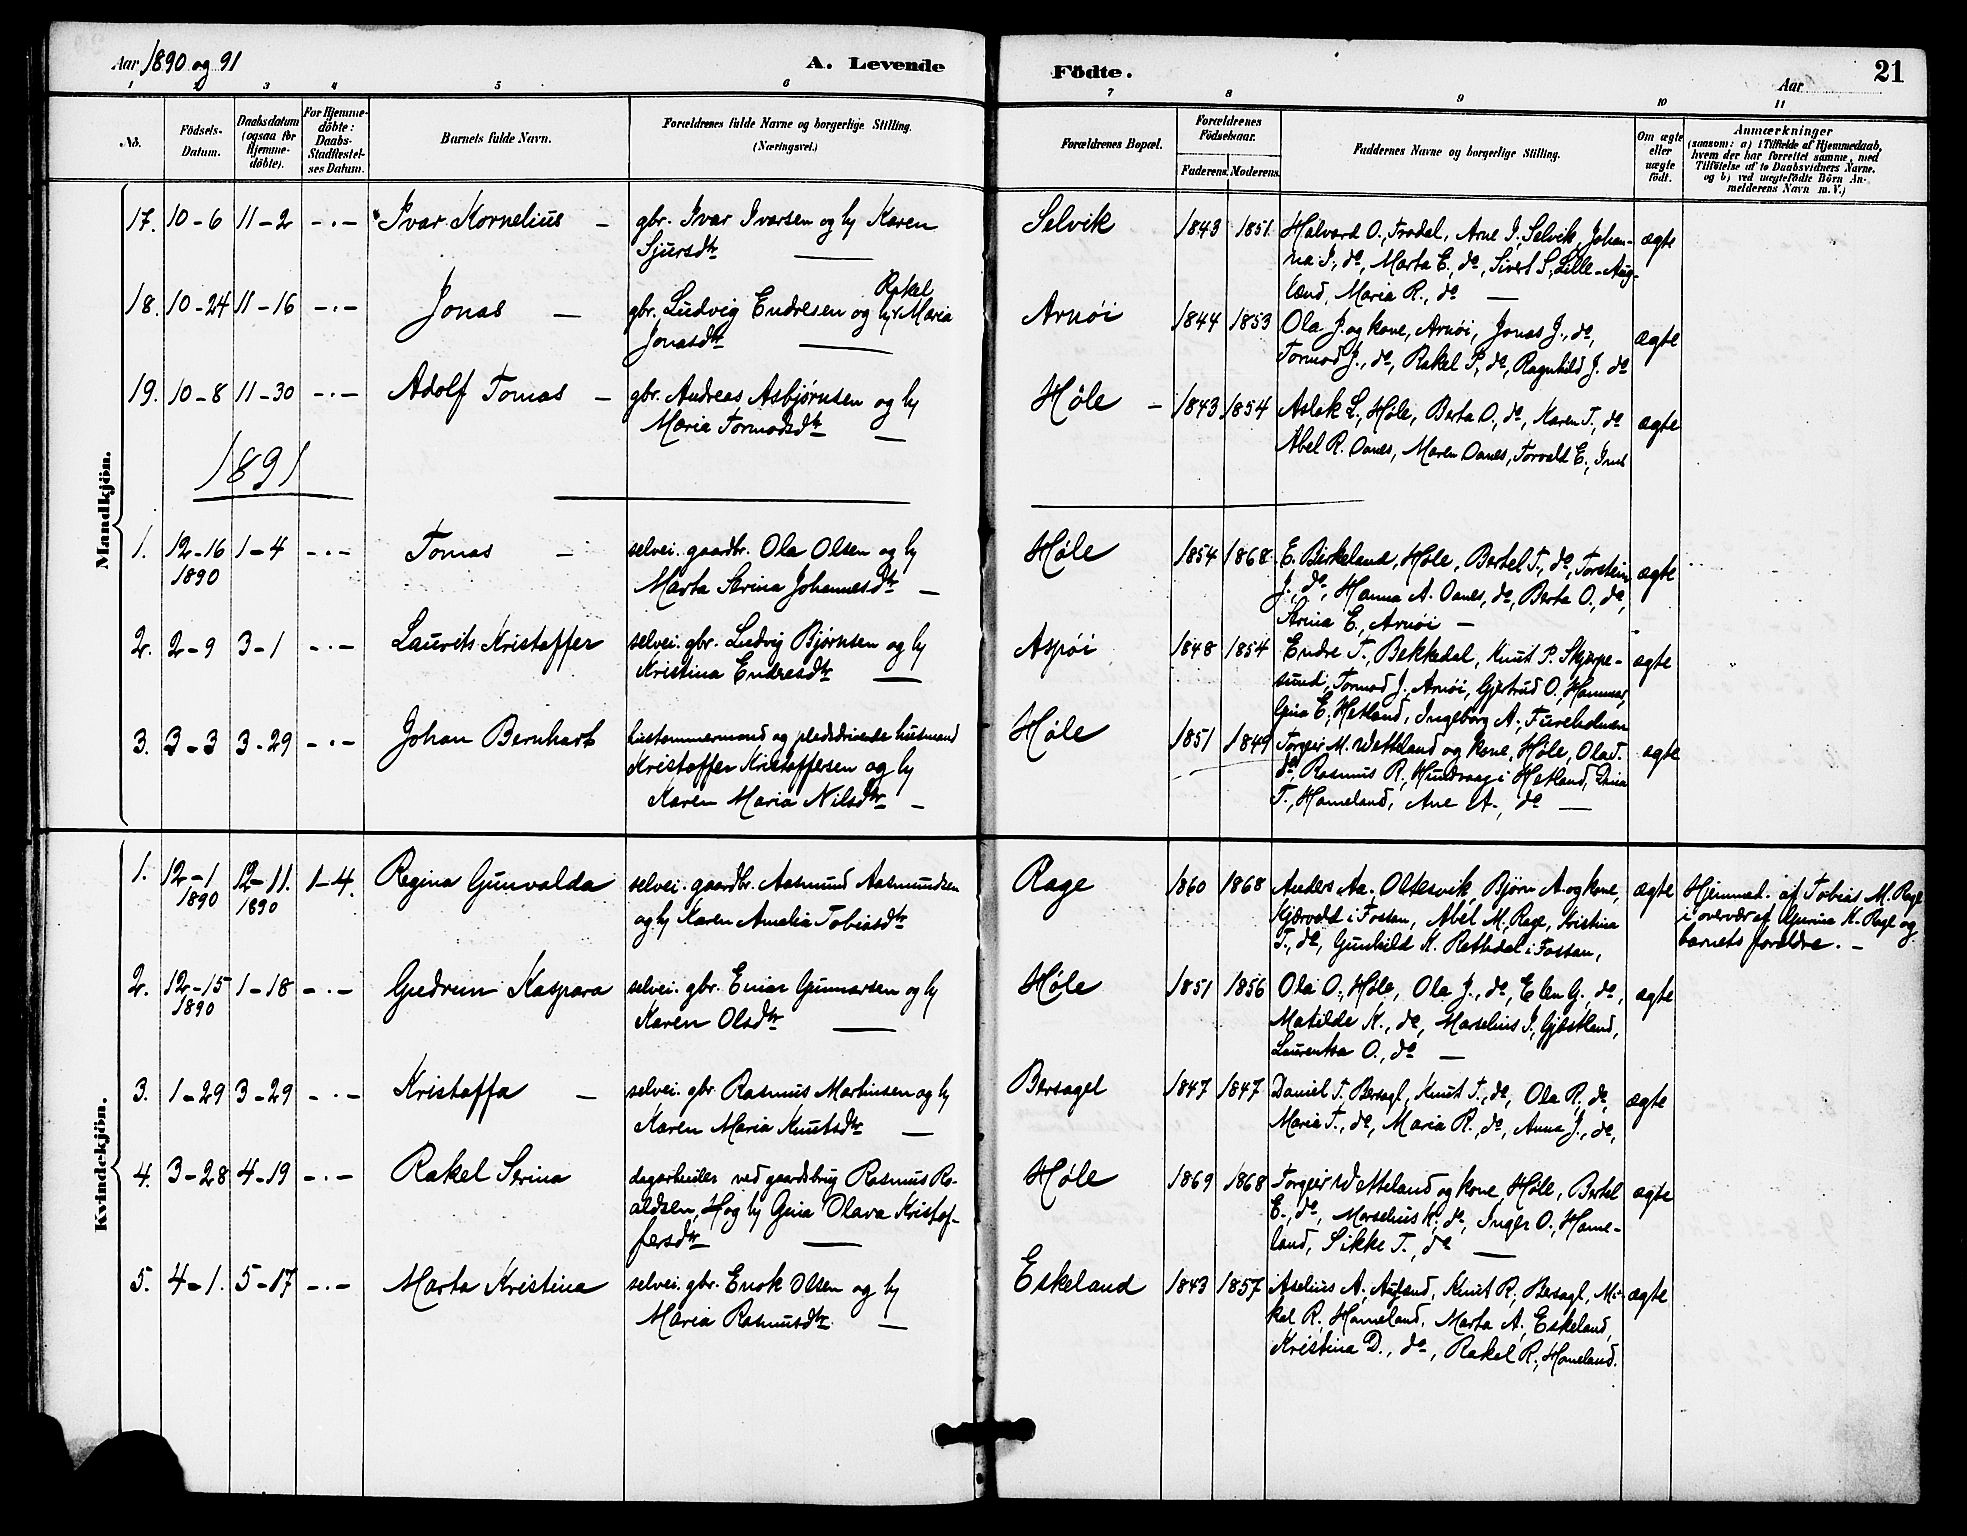 Aar 1890 og 91
A. Levende
Födte.
Aar
21
1 2 3 4 5 6 7 8 9 10 11
No.
Födsels-Datum.
Daabsdatum (ogsaa for Hjemme-döbte).
For Hjemme-döbte: Daabs-Stadfæstel-ses Datum.
Barnets fulde Navn.
Forældrenes fulde Navne og borgerlige Stilling. (Næringsvei.)
Forældrenes Bopæl.
Forældrenes Födselsaar.
Faderens. Moderens.
Faddernes Navne og borgerlige Stilling.
Om ægte eller uægte födt.
Anmærkninger
(saasom: a) i Tilfælde af Hjemmedaab,
hvem der har forrettet samme, med
Tilföielse af to Daabsvidners Navne.
og b) ved uægtefödte Börn An-
melderens Navn m. V.)
Mandkjön.
17. 10-6 11-2 -.- Ivar Kornelius - gbr. Ivar Ivarsen og hu Karen
Sjursdtr
Selvik 1843 1851 Halvard O., Frodal, Arne I., Selvik, Johan-
na I., do, Marta E., do, Sivert S., Lille-Aug-
land, Maria R., do
ægte
18. 10-24 11-16 -.- Jonas - gbr. Ludvig Endresen og hu Rakel Maria
Jonasdtr
Arnøi 1844 1853 Ola J. og kone, Arnøi, Jonas J., do,
Tormod J., do, Rakel P., do, Ragnhild J. do
ægte
19. 10-8 11-30 -.- Adolf Tomas - gbr. Andreas Asbjørnsen og hu
Maria Tormodsdtr
Høle - 1843 1854 Aslak L., Høle, Berta O., do, Karen T., do
Abel R. Oanes, Maren Oanes, Torvald E.,
ægte
1891
1. 12-16 1890 1-4 -.- Tomas - selvei. gaardbr. Ola Olsen og hu
Marta Serina Johannesdtr -
Høle 1854 1868 E. Birkeland, Høle, Bertel T., do, Torstein
J., do, Hanna A. Oanes, do, Berta O., do,
Serina E., Arnøi -
ægte
2. 2-9 3-1 -.- Laurits Kristoffer selvei. gbr. Ludvig Bjørnsen og hu
Kristina Endresdtr
Aspøi 1848 1854 Endre T., Bekkedal, Knut P. Skjørpe-
sund, Tormod J., Arnøi, Gjertrud O., Hammer,
Gina E., Hetland, Ingeborg A., Fureholmen
ægte
3. 3-3 3-29 -.- Johan Bernhart hustømmermand og pladsdrivende husmand
Kristoffer Kristoffersen og hu
Karen Maria Nilsdtr -
Høle 1851 1849 Torgeir M. Wetteland og kone, Høle, Ola T.
do, Rasmus R., Hundvaag i Hetland,
T., Hameland, Ane A., do
ægte
Kvindekjön.
1. 12-1 1890 12-11. 1890 1-4. Regina Gunvalda selvei. gaardbr. Aasmund Aasmundsen
og hu Karen Amalia Tobiasdtr
Rage 1860 1868 Anders Aa. Oltesvik, Bjørn A. og kone,
Kjærvold i Fossan, Abel M. Rage, Kristina
T., do, Gunhild K. Rettedal i Fossan,
ægte
Hjemmed. af Tobias M. Rage
i overvær af Serina K. Rage og
barnets forældre. -
2. 12-15 1890 1-18 -.- Gudrun Kaspara selvei. gbr. Einar Gunnarsen og hu
Karen Olsdtr
Høle 1851 1856 Ola O., Høle, Ola J., do, Elen G., do,
Matilde K., do, Marselius I., Gjestland,
Laurentsa O., do -
ægte
3. 1-29 3-29 -.- Kristoffa - selvei. gbr. Rasmus Martinsen og hu
Karen Maria Knutsdtr
Bersagel 1847 1847 Daniel T. Bersagl, Knut T., do, Ola R., do,
Maria T., do, Maria R., do, Anna J., do,
ægte
4. 3-28 4-19 -.- Rakel Serina dagarbeider ved gaardsbrug Rasmus Ro-
aldsen, H og hu Gina Olava Kristof-
fersdtr
Høle 1869 1868 Torgeir Wetteland og kone, Høle, Bertel
E., do, Marselius K., do, Inger O., Hame-
land, Sikke T., do
ægte
5. 4-1. 5-17 -.- Marta Kristina selvei. gbr. Enok Olsen og hu
Maria Rasmusdtr. -
Eskeland 1843 1857 Aselius A., Auland, Knut R., Bersagl, Mi-
kal R., Hameland, Marta A., Eskeland,
Kristina D., do, Rakel R., Hameland.
ægte